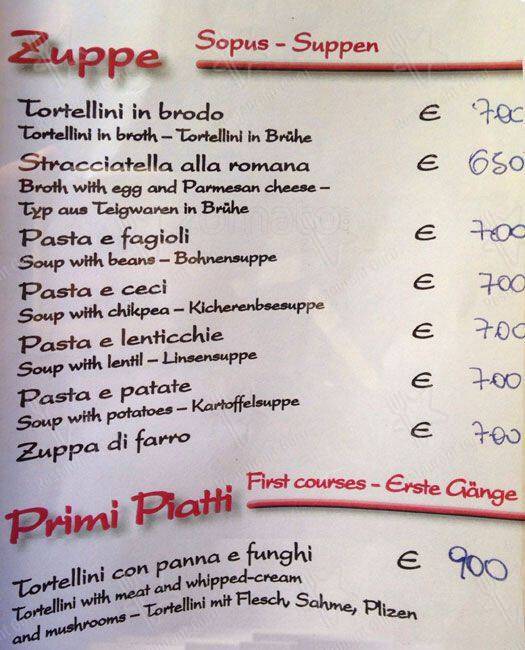 Zuppe Sopus - Suppen
Tortellini in brodo € 700
Tortellini in broth – Tortellini in Brühe
Stracciatella alla romana € 650
Broth with egg and Parmesan cheese –
Typ aus Teigwaren in Brühe
Pasta e fagioli € 700
Soup with beans – Bohnensuppe
Pasta e ceci € 700
Soup with chikpea – Kicherenbsesuppe
Pasta e lenticchie € 700
Soup with lentil – Linsensuppe
Pasta e patate € 700
Soup with potatoes – Kartoffelsuppe
Zuppa di farro € 700
Primi Piatti First courses - Erste Gänge
Tortellini con panna e funghi € 900
Tortellini with meat and whipped-cream
and mushrooms – Tortellini mit Flesch, Sahme, Plizen